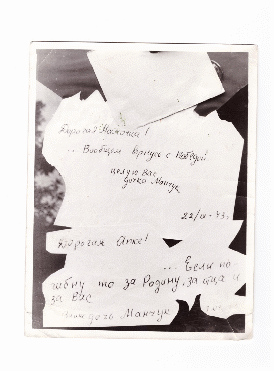 Дорогая Мамочка!
... Вообщем вернусь с победой!
целую Вас
дочка Манчук
22/III - 43г.
Дорогая Апке!
... Если по-
гибну то за Родину, за отца и
за Вас
дочь Манчук